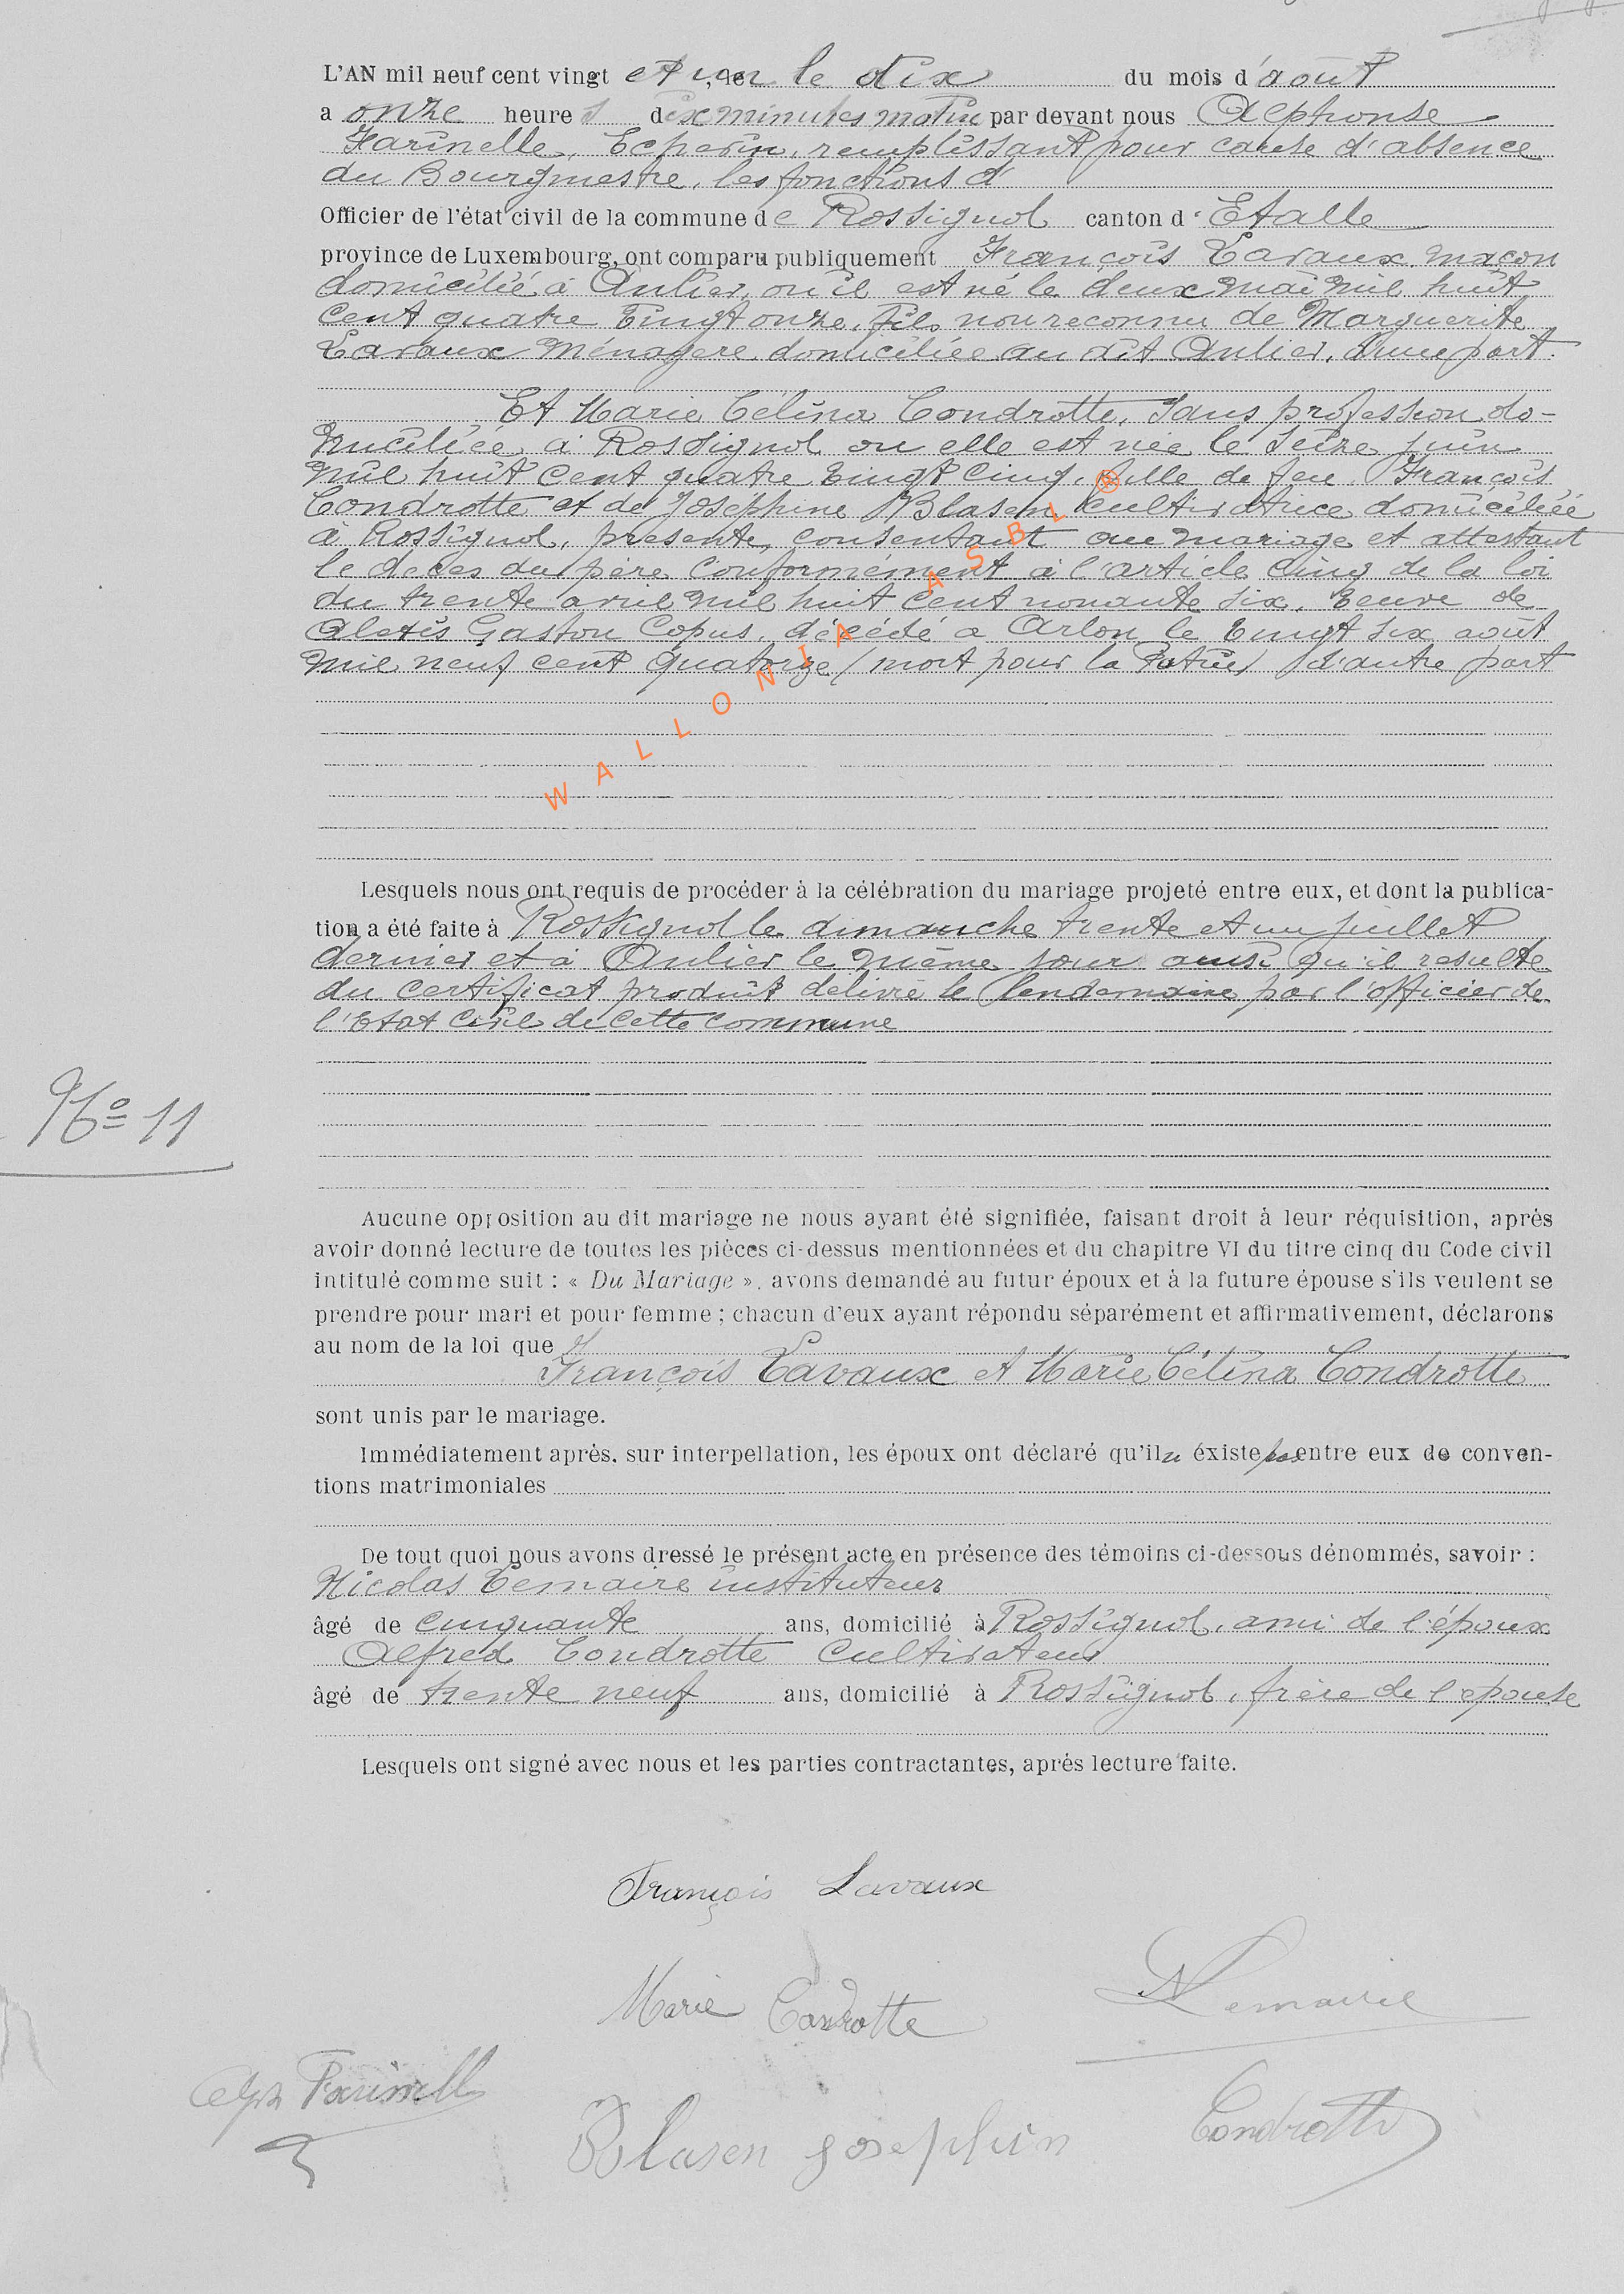 L'AN mil neuf cent vingt et un le dix du mois d'août
a onze heures dix minutes matin par devant nous Alphonse
Farinelle, Echevin, remplissant pour cause d'absence
du Bourgmestre, les fonctions d'
Officier de l'état civil de la commune de Rossignol canton d'Etalle
province de Luxembourg, ont comparu publiquement François Lavaux, maçon
domicilié à Anlier, où il est né le deux mai mil huit
cent quatre vingt onze, fils non reconnu de Marguerite
Lavaux ménagère domiciliée au dit Anlier, d'une part.
Et Marie Célina Condrotte, sans profession do-
miciliée à Rossignol ou elle est née le seize juin
mil huit cent quatre vingt cinq, fille de feu François
Condrotte et de Joséphine Blasen cultivatrice domiciliée
à Rossignol, présente, consentant au mariage et attestant
le décès du père conformément à l'article cinq de la loi
du trente avril mil huit cent nonante six, veuve de
Alexis Gaston Copus, décédé a Arlon le vingt six août
mil neuf cent quatorze (mort pour la Patrie) d'autre part
WALLONIA ASBL ®
Lesquels nous ont requis de procéder à la célébration du mariage projeté entre eux, et dont la publica-
tion a été faite à Rossignol le dimanche trente et un juillet
dernier et à Anlier le même jour ainsi qu'il résulte
du certificat produit délivré le lendemain par l'officier de
l'Etat civil de cette commune
No 11
Aucune opposition au dit mariage ne nous ayant été signifiée, faisant droit à leur réquisition, après
avoir donné lecture de toutes les pièces ci-dessus mentionnées et du chapitre VI du titre cinq du Code civil
intitulé comme suit : « Du Mariage ». avons demandé au futur époux et à la future épouse s'ils veulent se
prendre pour mari et pour femme ; chacun d'eux ayant répondu séparément et affirmativement, déclarons
au nom de la loi que
François Lavaux et Marie Célina Condrotte
sont unis par le mariage.
Immédiatement après, sur interpellation, les époux ont déclaré qu'il n'éxiste pas entre eux de conven-
tions matrimoniales
De tout quoi nous avons dressé le présent acte en présence des témoins ci-dessous dénommés, savoir :
Nicolas Lemaire instituteur
âgé de cinquante ans, domicilié à Rossignol, ami de l'époux
Alfred Condrotte cultivateur
âgé de trente neuf ans, domicilié à Rossignol, frère de l'épouse
Lesquels ont signé avec nous et les parties contractantes, après lecture faite.
François Lavaux
Marie Condrotte
N Lemaire
Alph Farinelle
Blasen Josephin
Condrotte